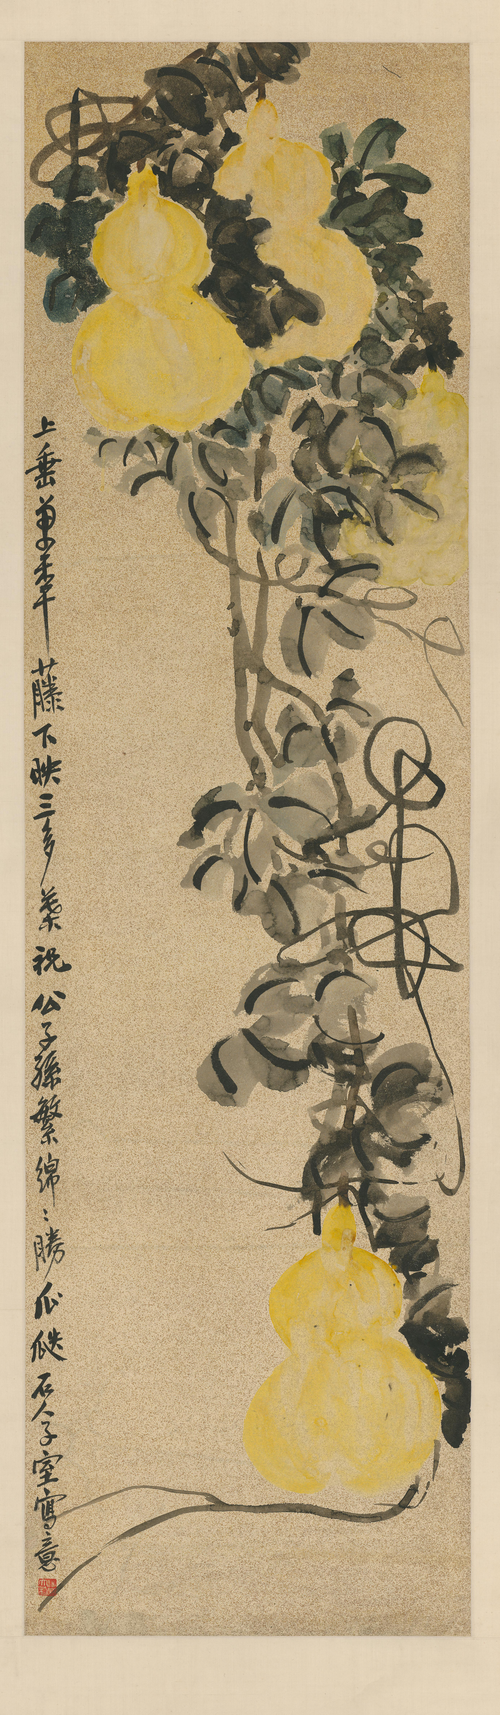 上垂萬年藤下映三多葉祝公子孫繁綿〻勝瓜瓞石人子室寫意